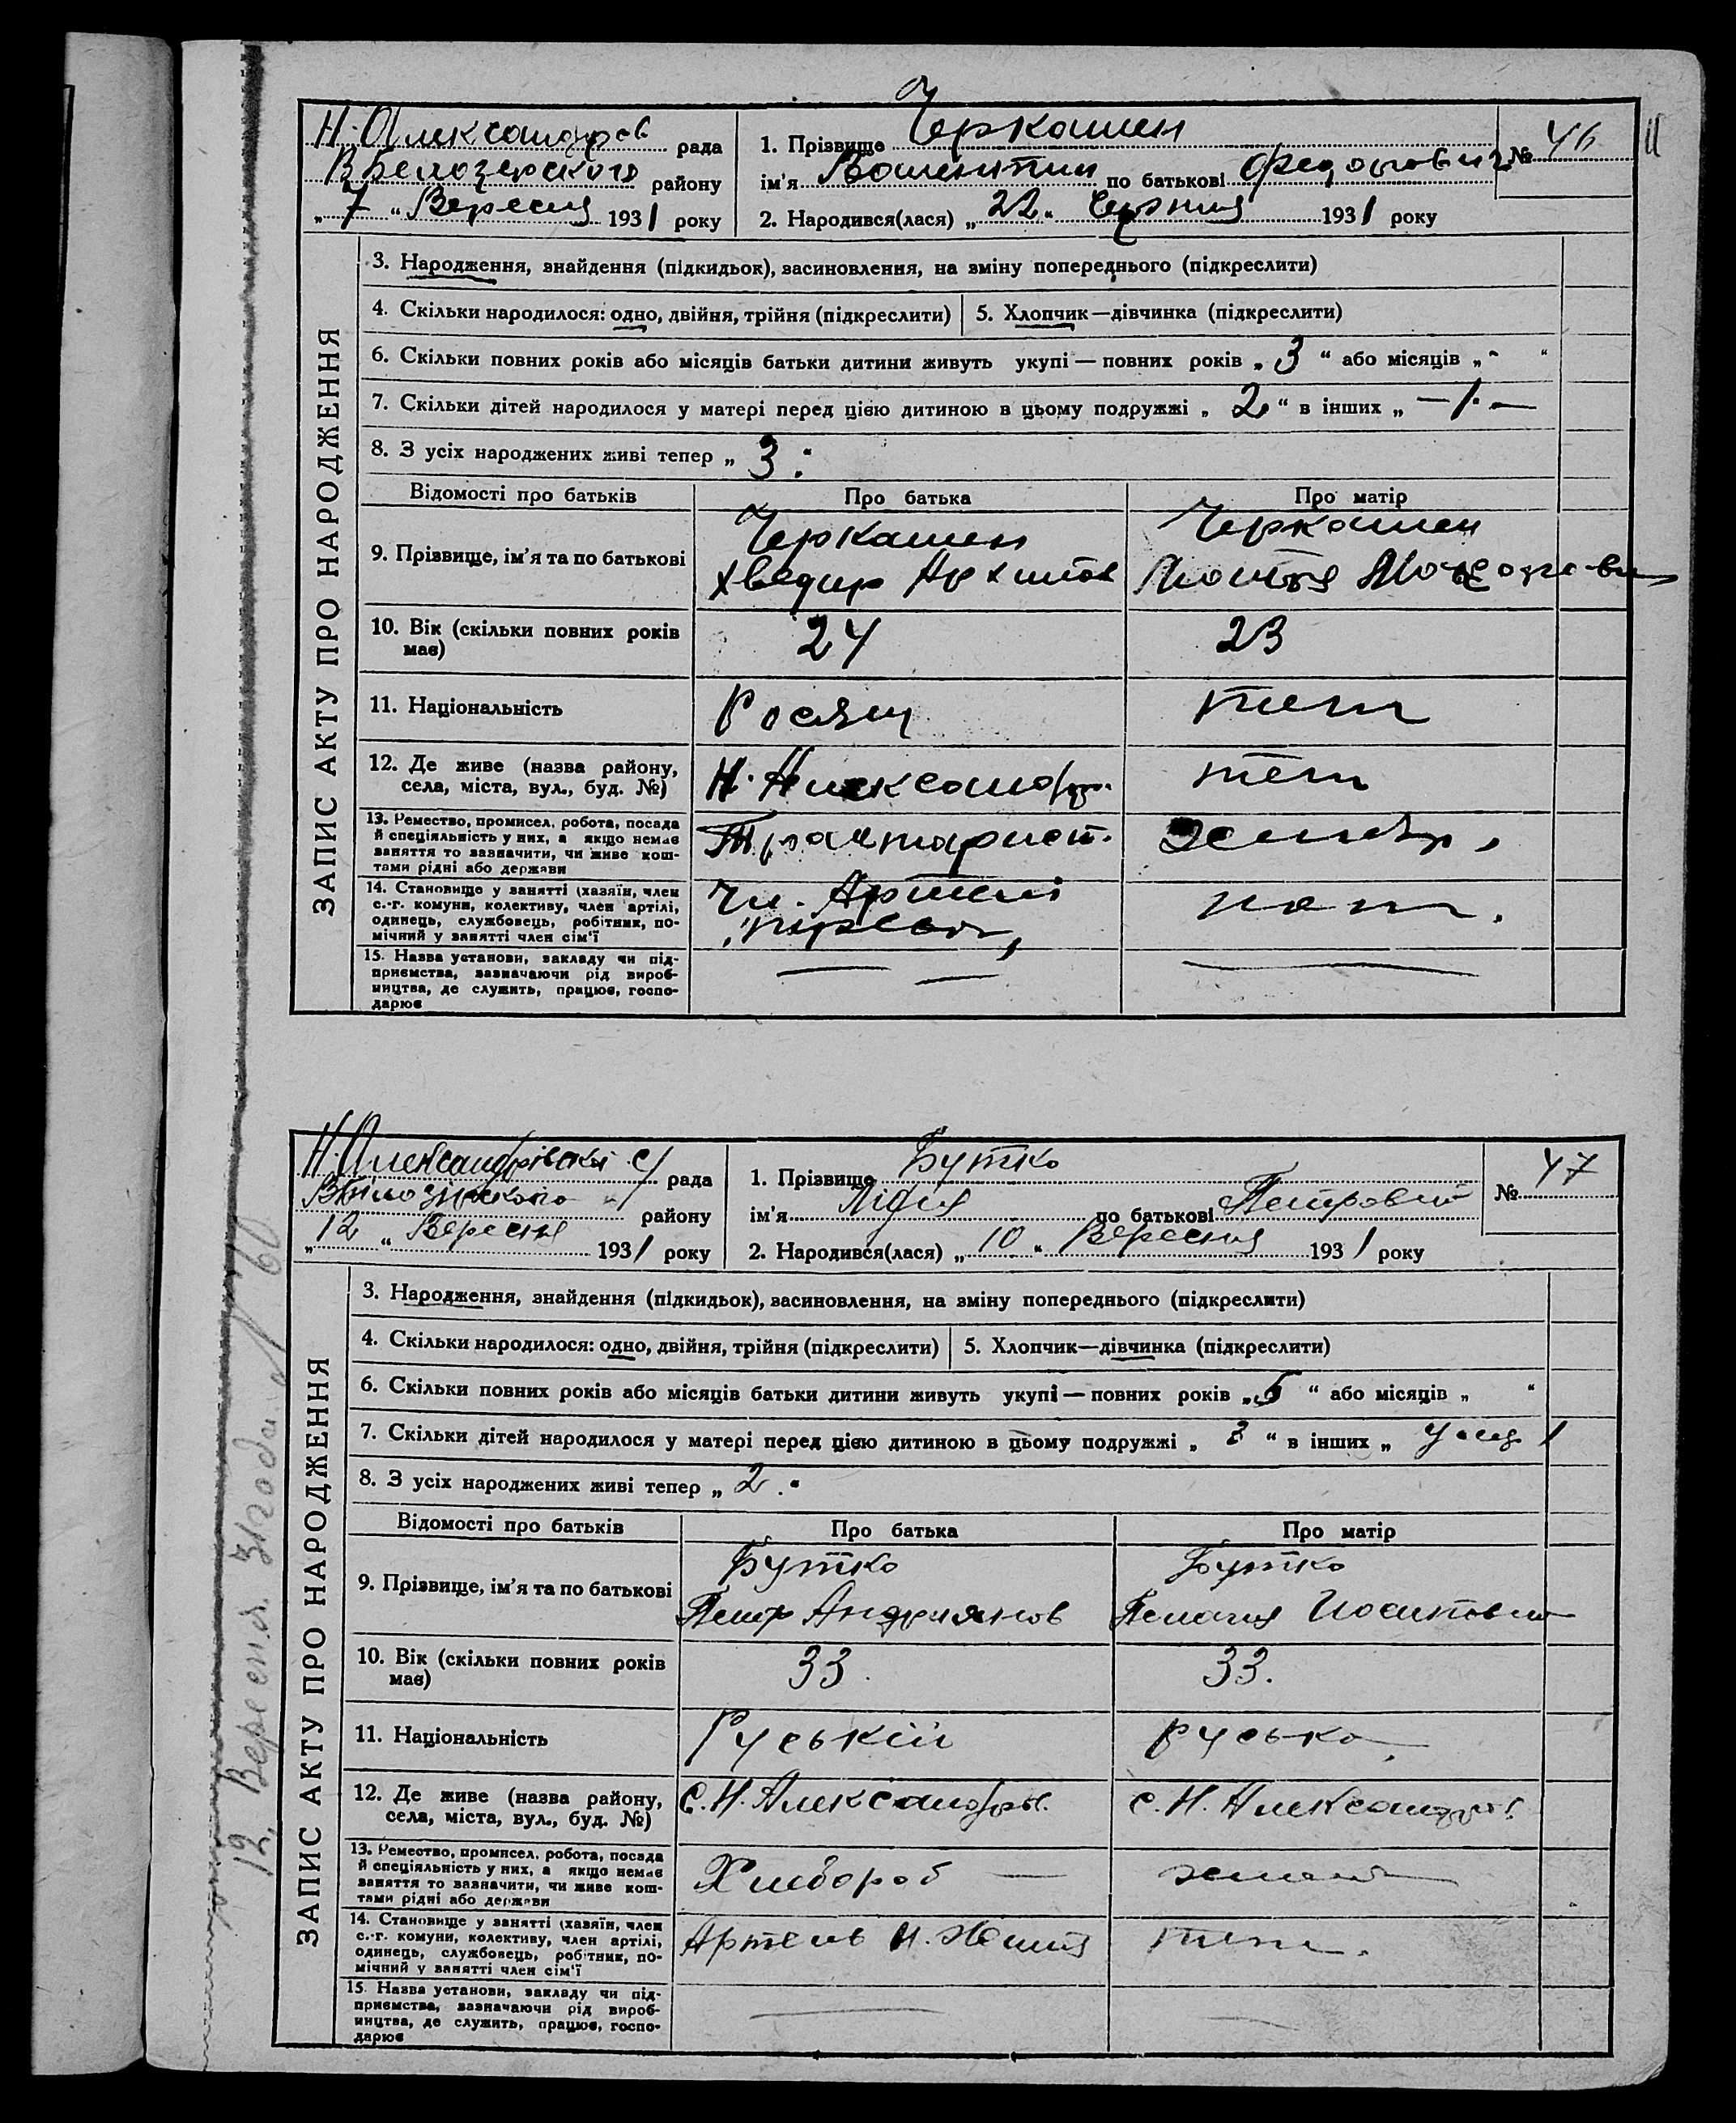 Н. Александров рада
В Белозерского району
„7“ Вересня 1931 року
1. Прізвище Черкашен
ім'я Валентин по батькові Федорович
№ 46
2. Народився(лася) „22“ Червня 1931 року
11
ЗАПИС АКТУ ПРО НАРОДЖЕННЯ
3. Народження, знайдення (підкидьок), засиновлення, на зміну попереднього (підкреслити)
4. Скільки народилося: одно, двійня, трійня (підкреслити) 5. Хлопчик—дівчинка (підкреслити)
6. Скільки повних років або місяців батьки дитини живуть укупі — повних років „3“ або місяців „-“
7. Скільки дітей народилося у матері перед цією дитиною в цьому подружжі „2“ в інших „ —/.—
8. З усіх народжених живі тепер „3“
Відомості про батьків Про батька Про матір
9. Прізвище, ім'я та по батькові
Черкашен
Хведир Архипов
Черкашен
10. Вік (скільки повних років має)
24
23
11. Національність
Росяни
теж
12. Де живе (назва району, села, міста, вул., буд. №)
Н. Александр.
теж
13. Ремество, промисел, робота, посада
й спеціяльність у них, а якщо немає
заняття то зазначити, чи живе кош-
тами рідні або держави
Трактарист.
14. Становище у занятті (хазяїн, член
с.-г. комуни, колективу, член артілі,
одинець, службовець, робітник, по-
мічний у занятті член сім'ї
Чл. Артелі
15. Назва установи, закладу чи під-
приємства, зазначаючи рід вироб-
ництва, де служить, працює, госпо-
дарює
Н. Александрівської с/ рада
В Білозірського району
„12“ Вересня 1931 року
1. Прізвище Бутко
ім'я Лідия по батькові Петровна
№ 47
2. Народився(лася) „10“ Вересня 1931 року
ЗАПИС АКТУ ПРО НАРОДЖЕННЯ
3. Народження, знайдення (підкидьок), засиновлення, на зміну попереднього (підкреслити)
4. Скільки народилося: одно, двійня, трійня (підкреслити) 5. Хлопчик—дівчинка (підкреслити)
6. Скільки повних років або місяців батьки дитини живуть укупі — повних років „5“ або місяців „ “
7. Скільки дітей народилося у матері перед цією дитиною в цьому подружжі „3“ в інших „
8. З усіх народжених живі тепер „2“
Відомості про батьків Про батька Про матір
9. Прізвище, ім'я та по батькові
Бутко
Петр Андриянов
Бутко
Пелагия Иосиповна
10. Вік (скільки повних років має)
33
33.
11. Національність
Руській
руська
12. Де живе (назва району, села, міста, вул., буд. №)
С. Н. Александрів.
с. Н. Александрів.
13. Ремество, промисел, робота, посада
й спеціяльність у них, а якщо немає
заняття то зазначити, чи живе кош-
тами рідні або держави
Хлебороб
14. Становище у занятті (хазяїн, член
с.-г. комуни, колективу, член артілі,
одинець, службовець, робітник, по-
мічний у занятті член сім'ї
Артель Н. Житя
теж.
15. Назва установи, закладу чи під-
приємства, зазначаючи рід вироб-
ництва, де служить, працює, госпо-
дарює
12 Вересня 31 года № 60